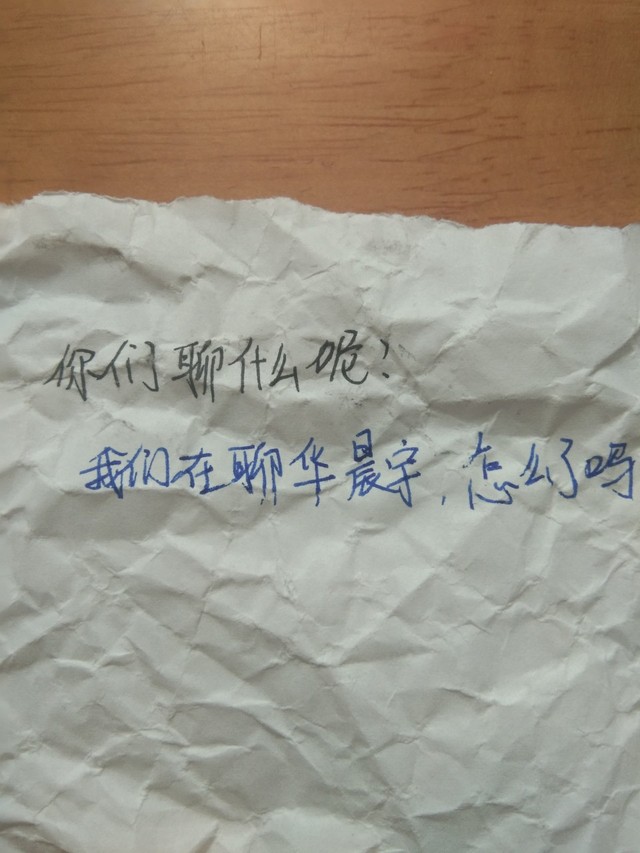 你们聊什么呢?
我们在聊华晨宇,怎么了吗